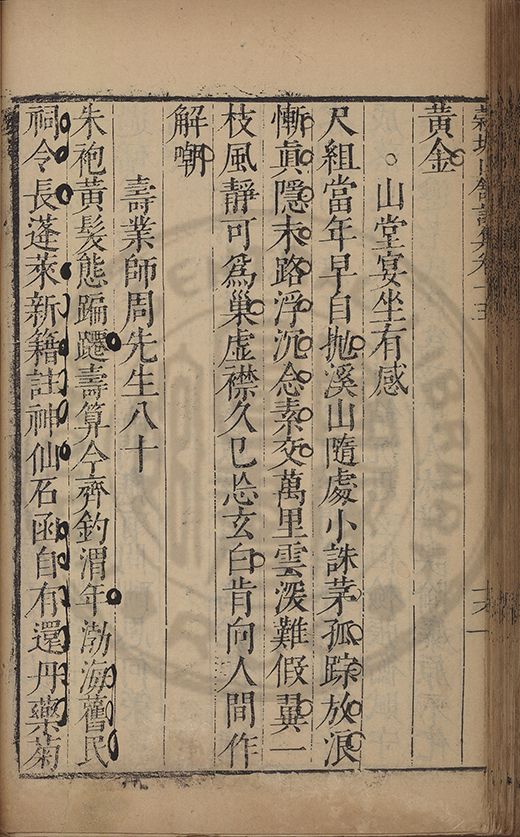 黃金
山堂宴坐有感
尺組當年早自拋溪山隨處小誅茅孤踪放浪
慚眞隱末路浮沉念素交萬里雲深難假翼一
枝風靜可爲巢虛襟久已忘玄白肯向人間作
解嘲
壽業師周先生八十
朱袍黃髮態蹁蹮壽算今齊釣渭年渤海舊民
祠令長蓬萊新籍註神仙石函自有還丹藥菊